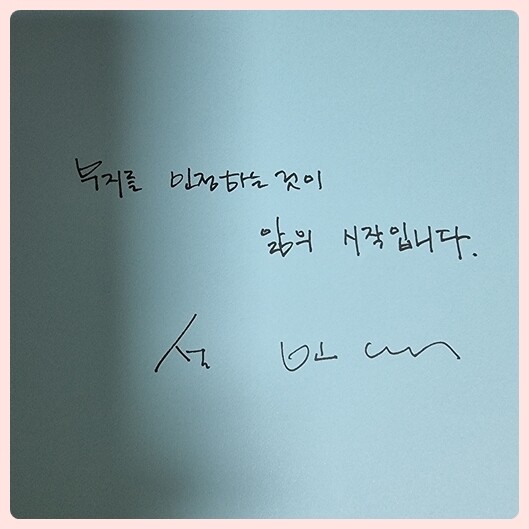 무지를 인정하는 것이
앎의 시작입니다.